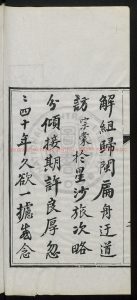 解組歸閩扁舟迂道
訪宗棠於星沙旅次略
分傾接期許良厚忽
三四十年久欲一攄舊念